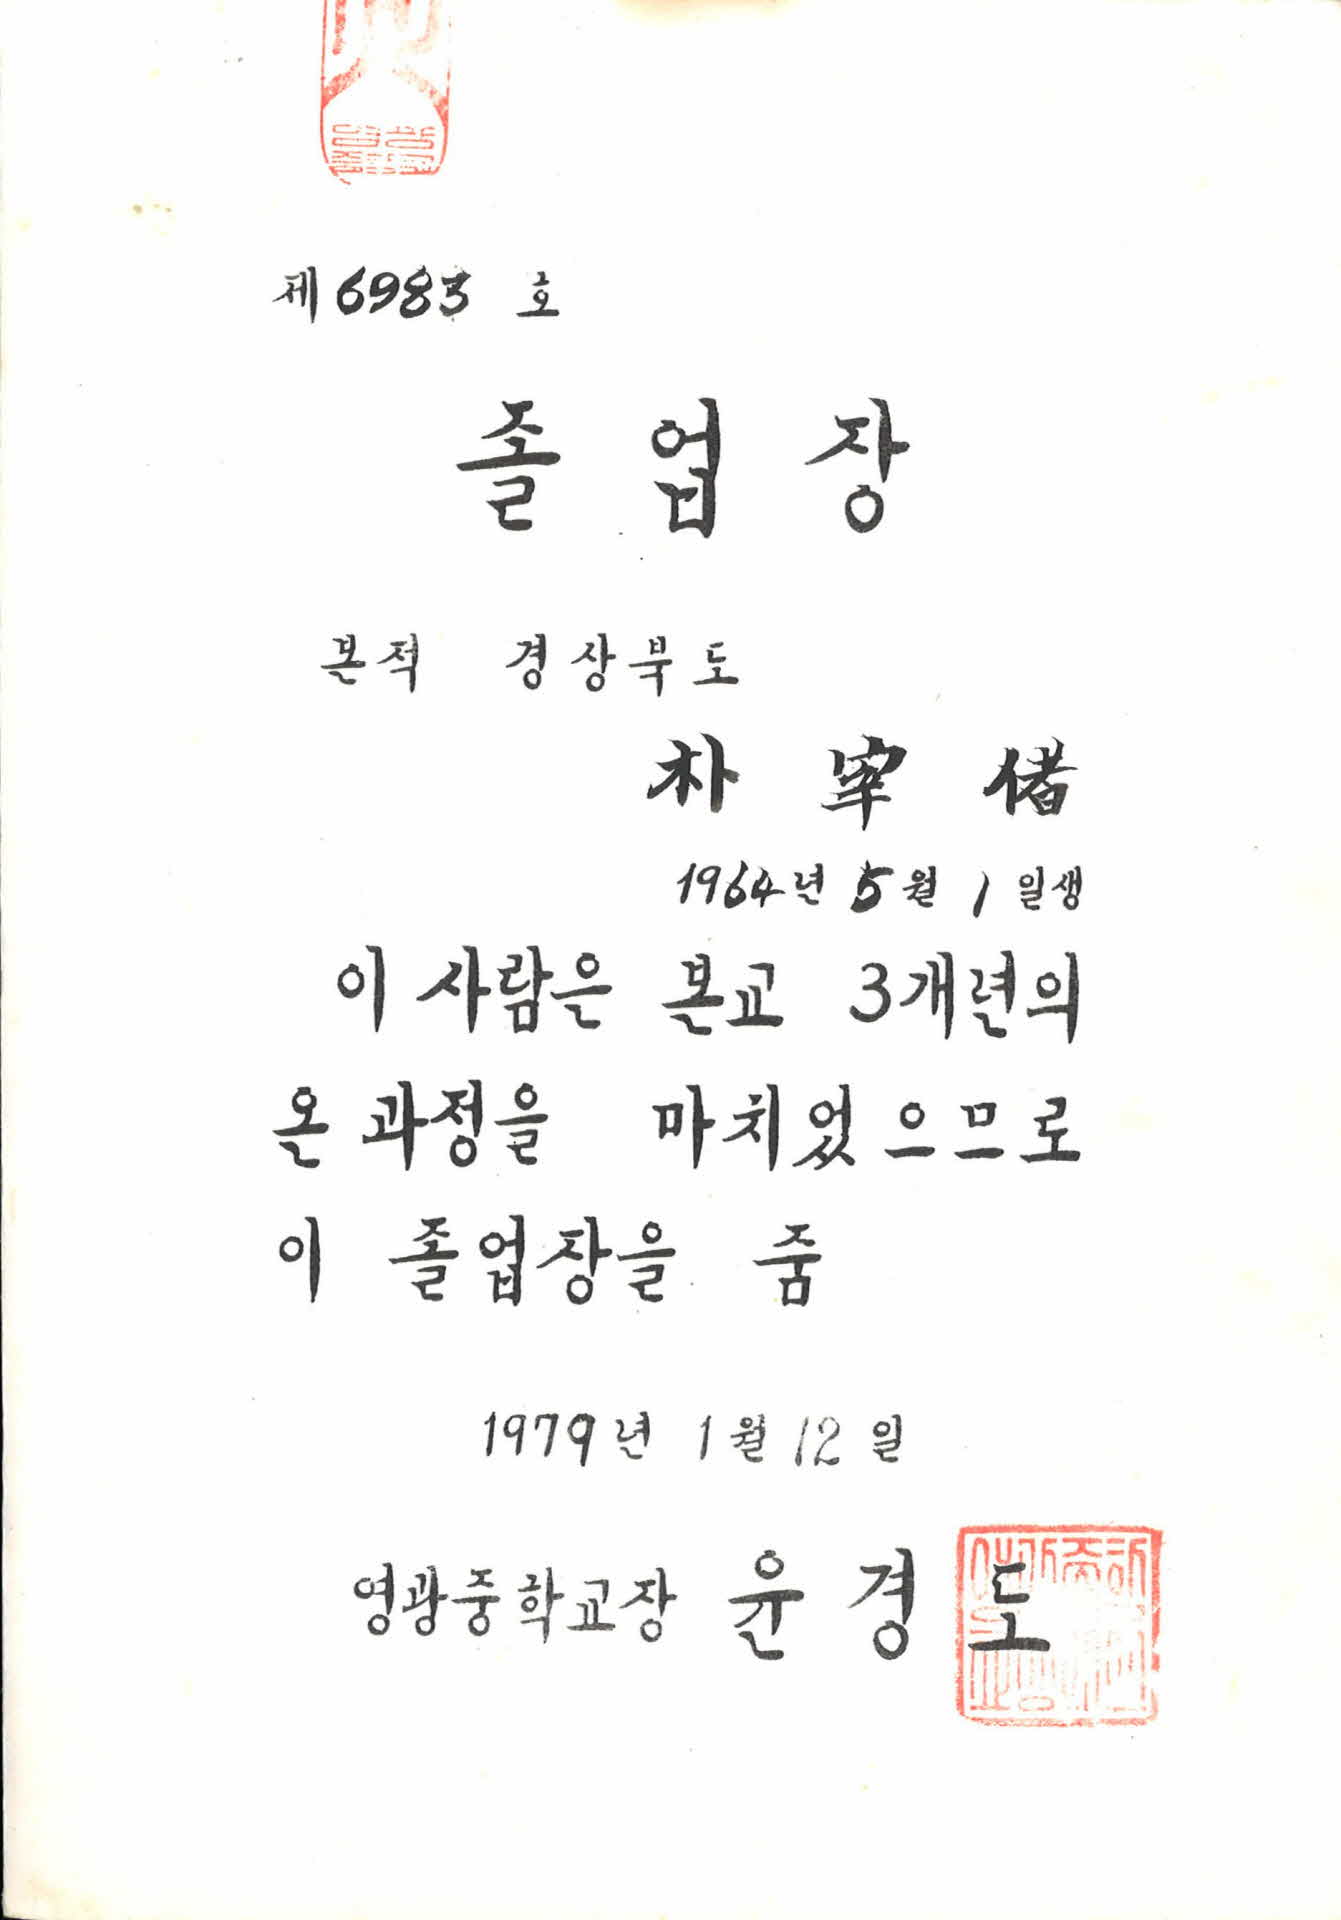 제6983 호
졸업장
본적 경상북도
朴宰偖
1964년 5월 1일생
이 사람은 본교 3개년의
온 과정을 마치었으므로
이 졸업장을 줌
1979년 1월 12일
영광중학교장 윤경도